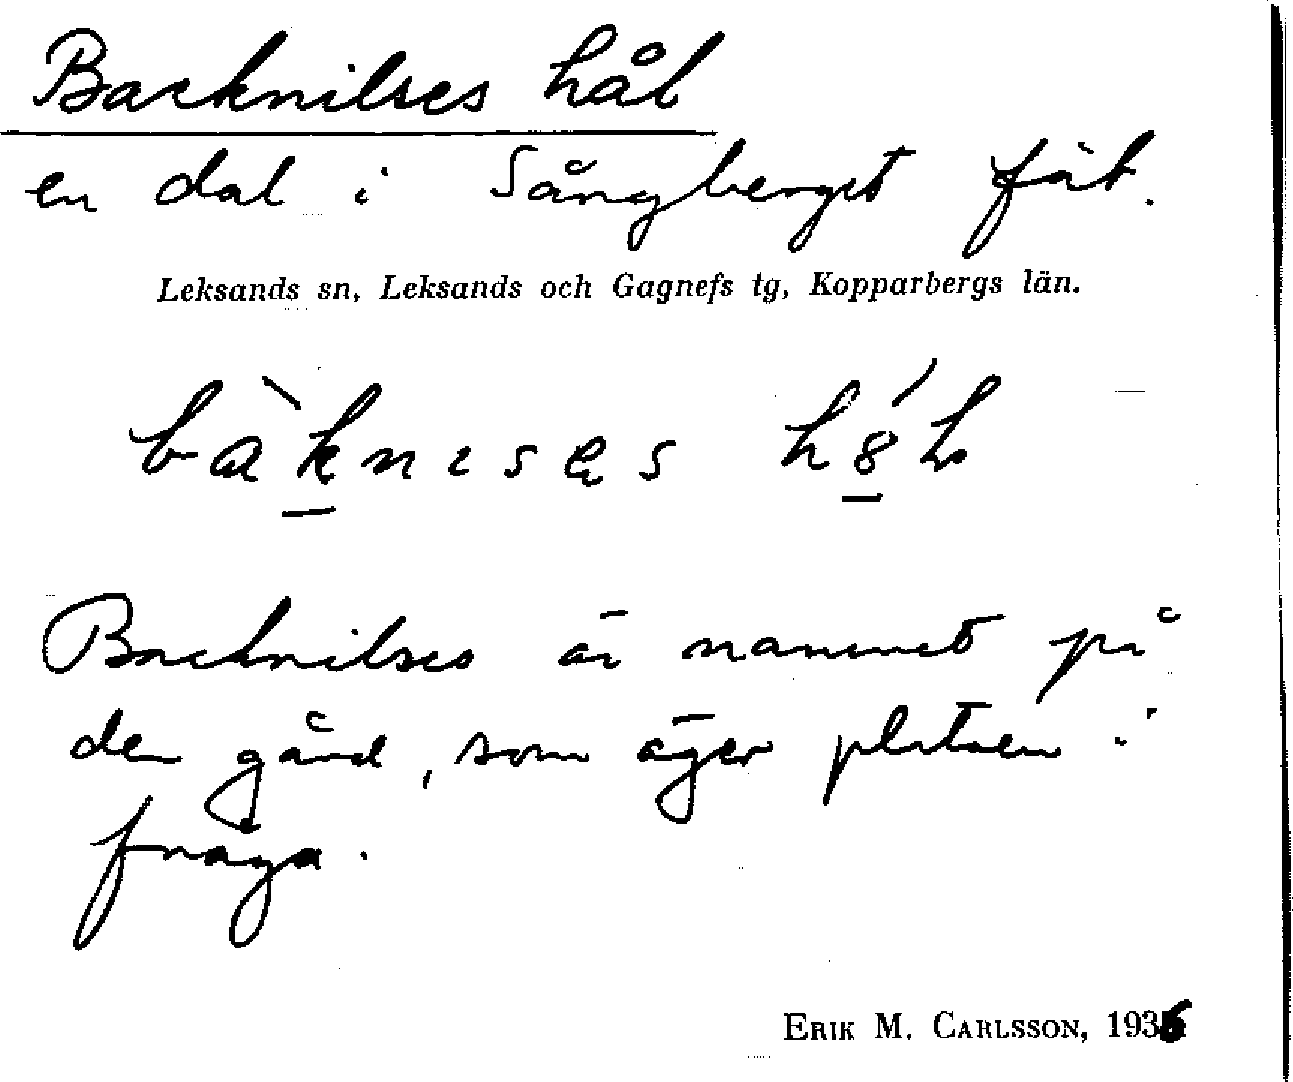 Backnilses hål
en dal i Sångberget fäb.
Leksands sn, Leksands och Gagnefs tg, Kopparbergs län.
bàk̲nɩsęs
Backnilses är namnet på
den gård, som äger platsen i
fråga.
ERIK M. CARLSSON, 1936